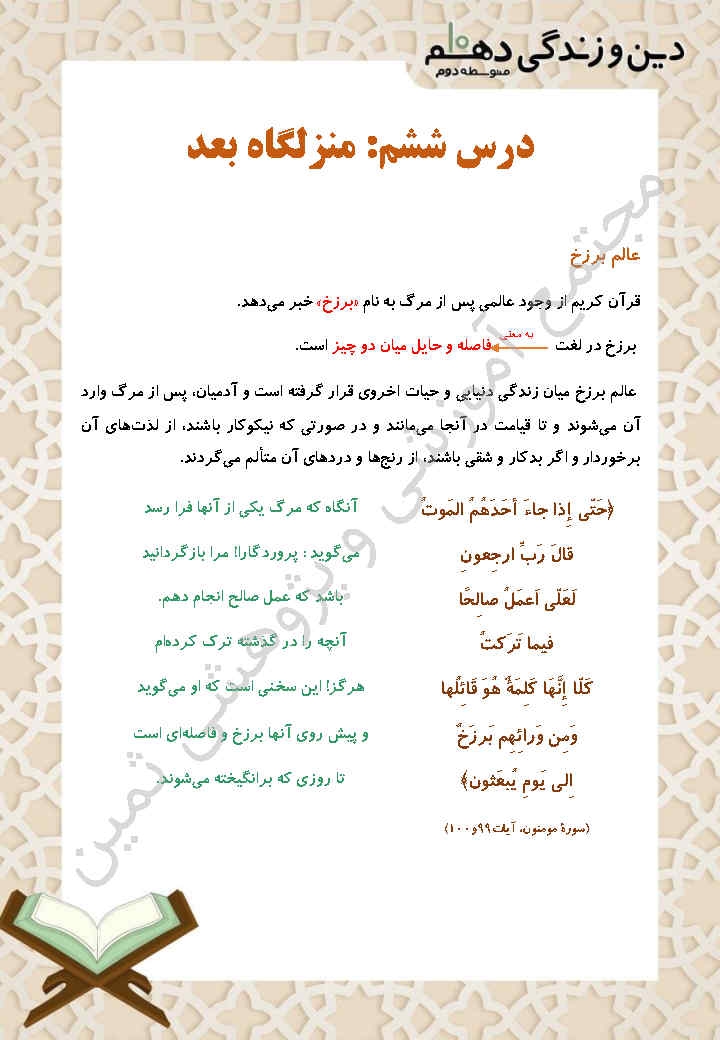 دین و زندگی دهم
متوسطه دوم
درس ششم: منزلگاه بعد
عالم برزخ
قرآن کریم از وجود عالمی پس از مرگ به نام «برزخ» خبر می‌دهد.
برزخ در لغت به معنی فاصله و حایل میان دو چیز است.
عالم برزخ میان زندگی دنیایی و حیات اخروی قرار گرفته است و آدمیان، پس از مرگ وارد
آن می‌شوند و تا قیامت در آنجا می‌مانند و در صورتی که نیکوکار باشند، از لذت‌های آن
برخوردار و اگر بدکار و شقی باشند، از رنج‌ها و دردهای آن متألم می‌گردند.
﴿حَتّی إِذا جاءَ أحَدَهُمُ المَوتُ آنگاه که مرگ یکی از آنها فرا رسد
قالَ رَبِّ ارجِعونِ می‌گوید : پروردگارا! مرا بازگردانید
لَعَلّی اَعمَلُ صالِحًا باشد که عمل صالح انجام دهم.
فیما تَرَکتُ آنچه را در گذشته ترک کرده‌ام
کَلّا إِنَّهَا کَلِمَةٌ هُوَ قَائِلُها هرگز! این سخنی است که او می‌گوید
وَمِن وَرائِهِم بَرزَخٌ و پیش روی آنها برزخ و فاصله‌ای است
اِلی یَومِ یُبعَثون﴾ تا روزی که برانگیخته می‌شوند.
(سورهٔ مومنون، آیات ۹۹و۱۰۰)
مجتمع آموزشی و پژوهشی ثمین